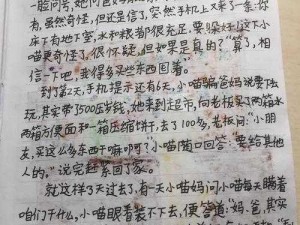 脸问号,她问爸妈
有,虽然奇怪,但还是信了,突然手机上又来了一条:你
床下有地下室,水和粮都很充足,要躲好!这下小
喵更奇怪了,很怀疑,但如果是真的?“算了,相
信一下吧,我得多买些东西囤着。”
到了第2天,手机提示还有6天,小喵骗爸妈说要下去
玩,其实带了500压岁钱,她来到超市,向老板买了两箱水
两箱方便面和一箱压缩饼干,去了100多,老板问:“小朋
友,买这么多东西干嘛呵?小喵简口回答:要给其他
人的。”说完赶紧回了家。
就这样了3天过去了,有一天小喵妈问小喵每天瞒着
咱们干什么,小喵眼看装不下去,便答道:“妈、爸,其实